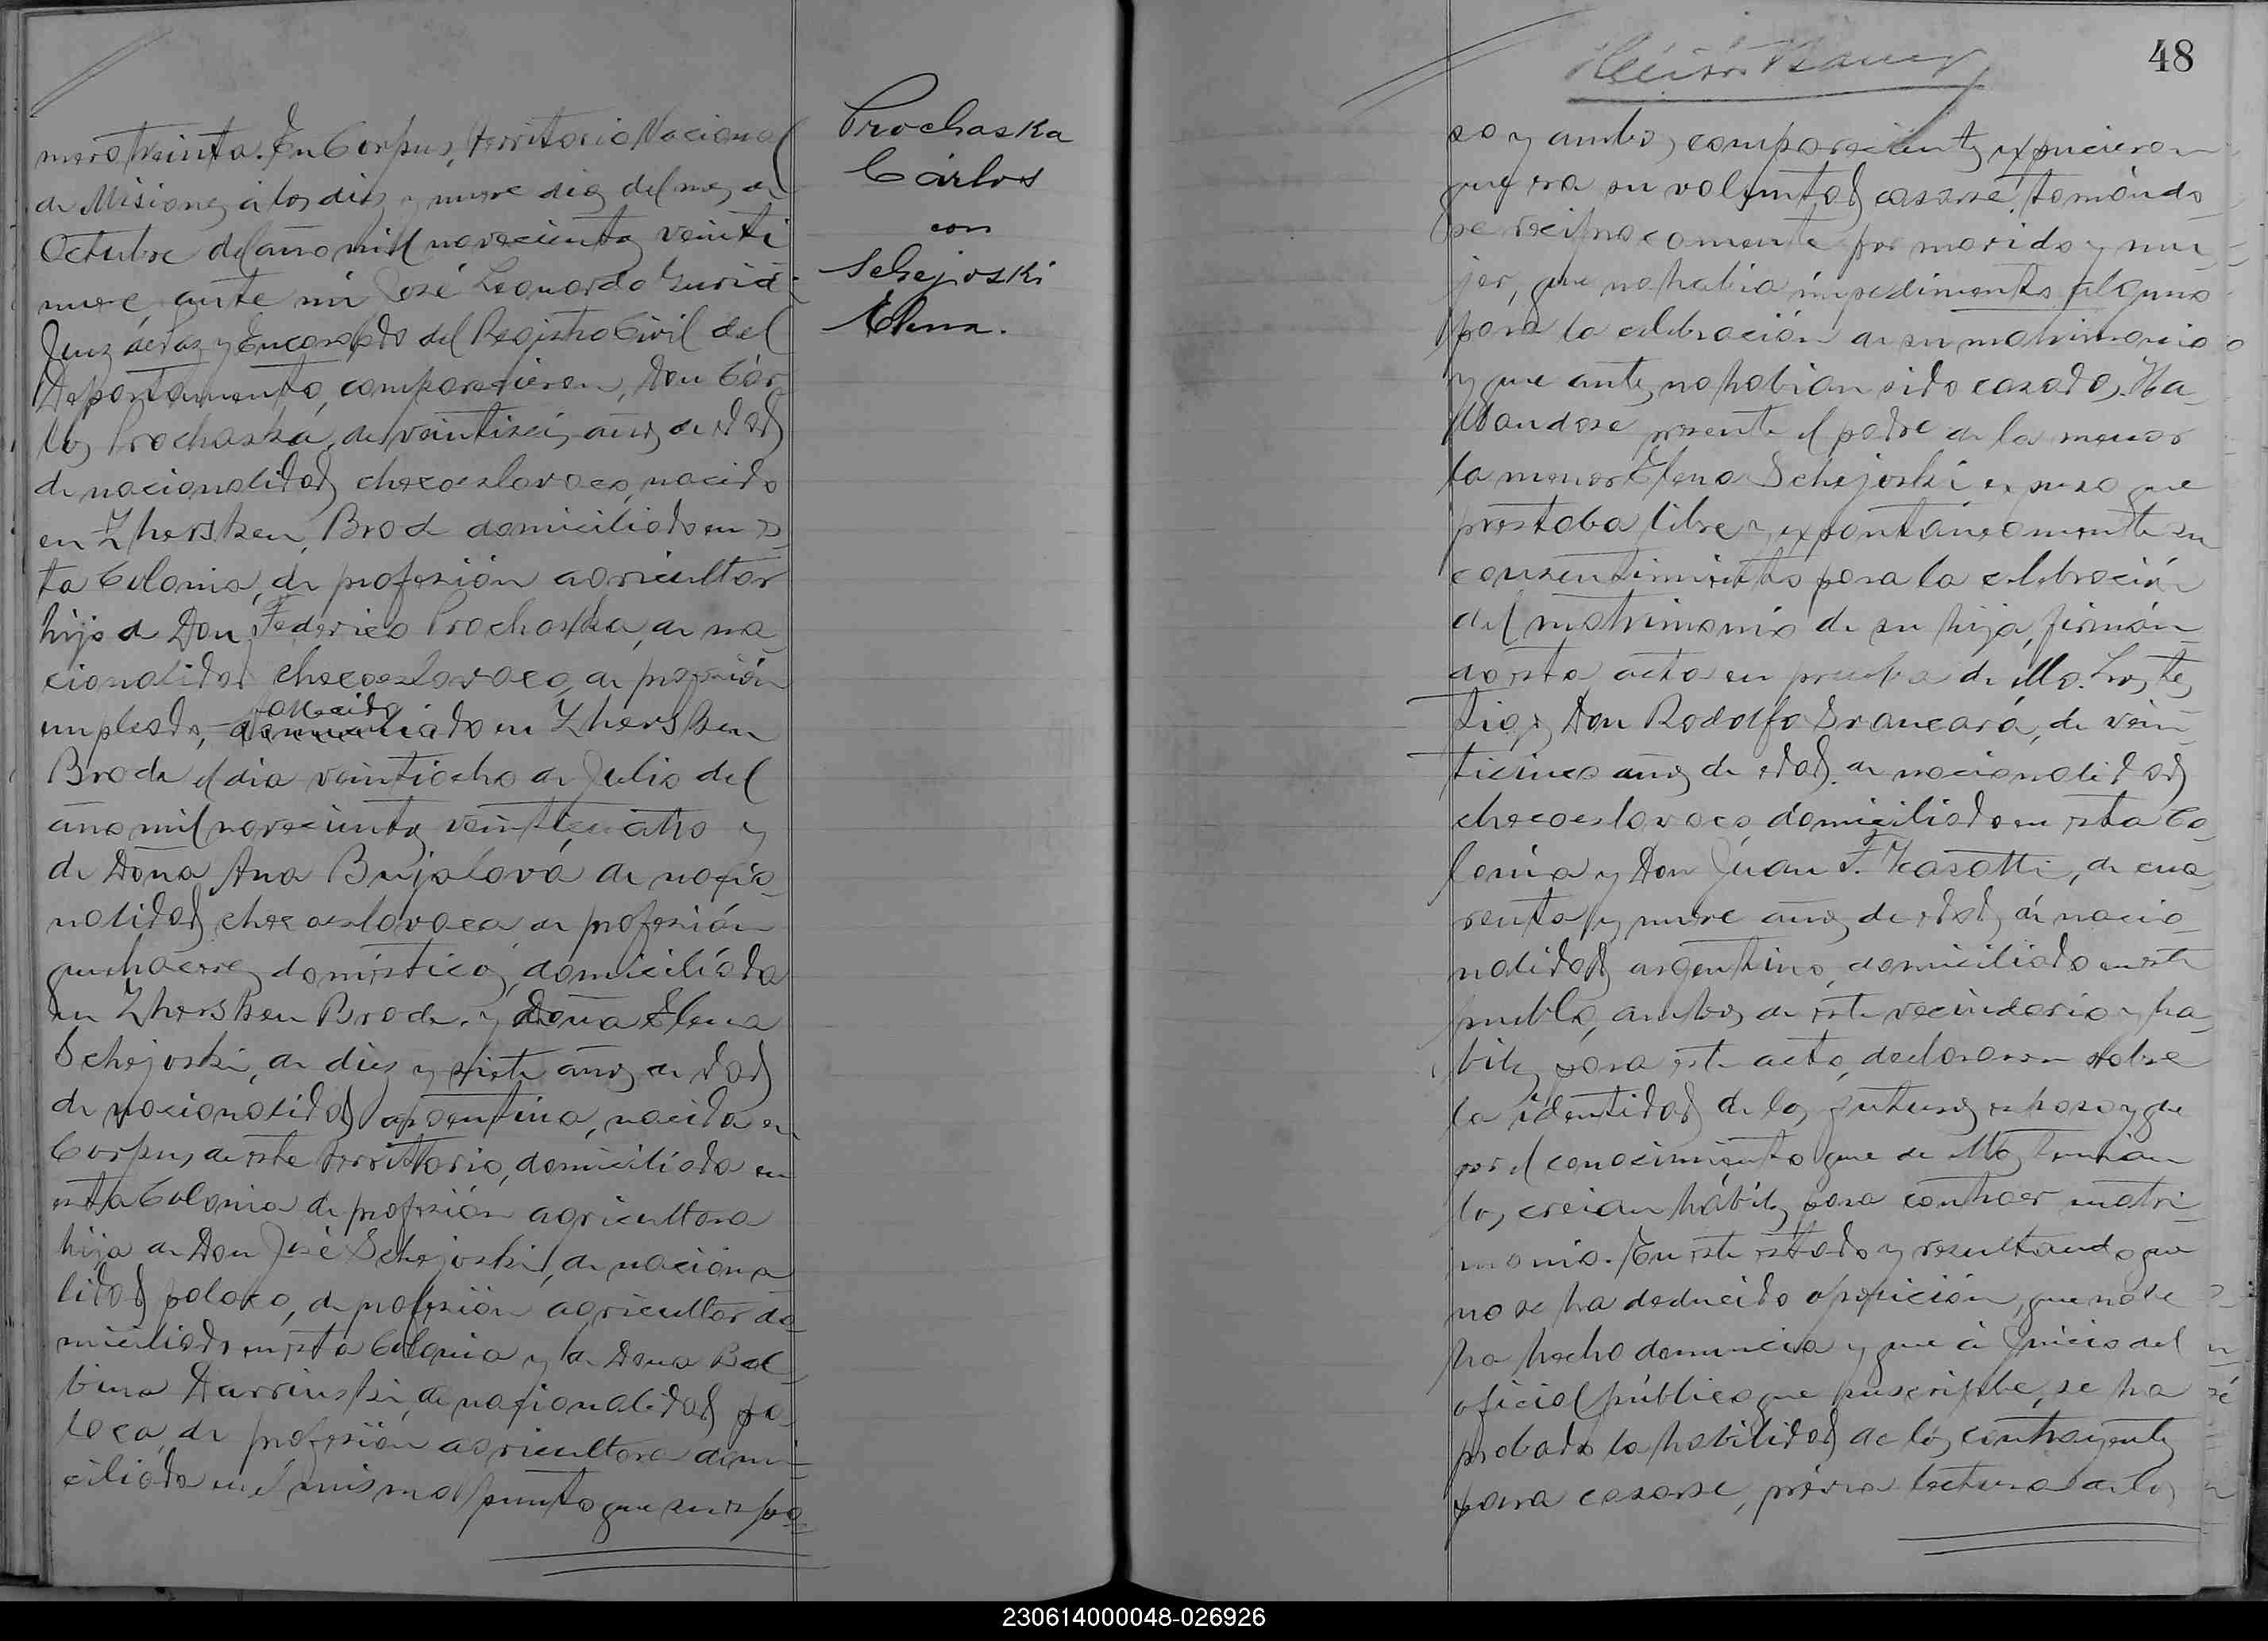 mero treinta. En Corpus, territorio Nacional
de Misiones, á los diez y nueve dias del mes de
Octubre del año mil novecientos veinti
nueve, ante mi José Leonardo
Juez de Paz y Encargado del Registro Civil del
Departamento, comparecieron, Don Cár
los Prochaska, de veintiseis años de edad
de nacionalidad checoeslovaco, nacido
en Zhersken Brod domiciliado en es
ta Colonia, de profesión agricultor
hijo de Don Federico Prochaska, de na
cionalidad checoeslovaco, de profesión
empleado, fallecido en Zhersken
Brode el dia veintiocho de Julio del
año mil novecientos veinticuatro y
de Doña Ana Bujalová de nacio
nalidad checoeslovaca de profesión
quehaceres domésticos, domiciliada
en Zhersken Brode. y Doña Elena
Schejoski, de diez y siete años de edad
de nacionalidad argentina, nacida en
Corpus, de este territorio, domiciliada en
esta Colonia de profesión agricultora
hija de Don José Schejoski, de naciona
lidad polaco, de profesión agricultor do
miciliado en esta Colonia y de Doña Bal
bina Darrinski, de nacionalidad po
laca, de profesión agricultora domi
ciliada en el mismo punto que su espo
Prochaska
Cárlos
con
Schejoski
Elena.
48
so y ambos comparecientes expucieron
que era su voluntad casarse, tomándo
se reciprocamente por marido y mu
jer, que no habia impedimento alguno
para la celebración de su matrimonio
y que antes no habian sido casados. Ha
llandose presente el padre de la menor
la menor Elena Schejoski, expuso que
prestaba libre y expontáneamente su
consentimiento para la celebración
del matrimonio de su hija, firmán
do esta acta en prueba de ello. Los tes
tigos Don Rodolfo Srancará, de vein
ticinco años de edad, de nacionalidad
checoeslovaco, domiciliado en esta Co
lonia y Don Juan F. Kasatti, de cua
renta y nueve años de edad, de nacio
nalidad argentino, domiciliado en este
pueblo, ambos de este vecindario y ha
biles para este acto, declararon sobre
la identidad de los futuros esposos y que
por el conocimiento que de ellos tenian
los creian hábiles para contraer matri
monio. En este estado y resultando que
no se ha deducido oposición, que no se
ha hecho denuncia y que á juicio del
oficial público que suscribe, se ha
probado la habilidad de los contrayentes
para casarse, prévia lectura de los
230614000048-026926